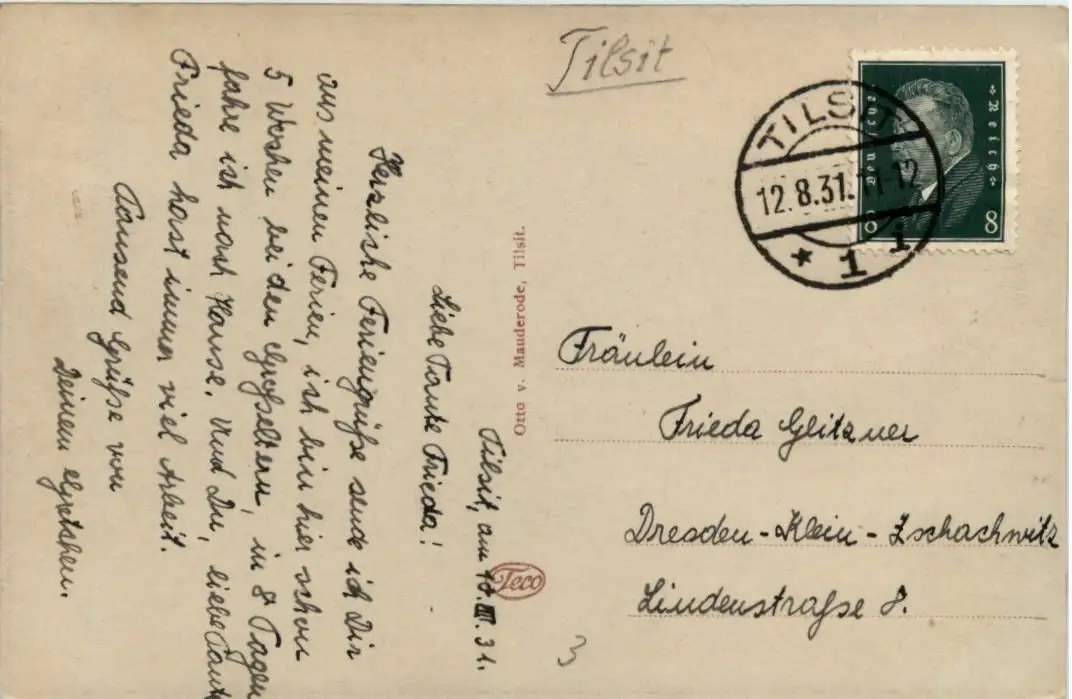 Tilsit
TILSIT
12.8.31.11-12
* 1 i
Deutsches
Reich
8 8
Otto v. Mauderode, Tilsit.
Teco
Fräulein
Frieda Glitzner
Dresden-Klein-Zschachwitz
Lindenstraße 8.
3
Tilsit, am 10. 31.
Liebe Tante Frieda!
Herzliche Feriengrüße sende ich Dir
aus meinen Ferien, ich bin hier schon
5 Wochen bei den Großeltern, in 8 Tagen
fahre ich nach Hause. Und Du, liebe Tante
Frieda hast immer viel Arbeit.
Tausend Grüße von
Deinem Gretchen.